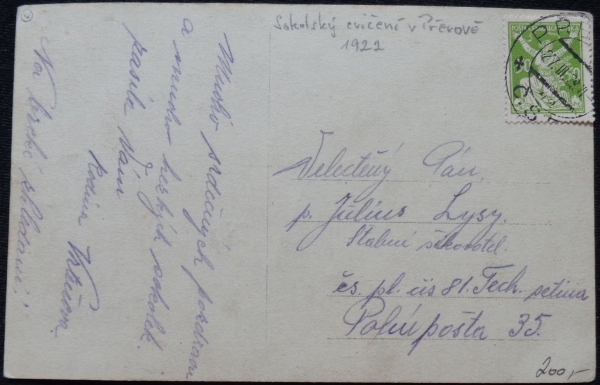 Sokolský cvičení v Přerově
1922
Mnoho srdečných pozdravů
a mnoho hezkých sokolek
posíla Vám
Rodina
Na brzké shledání!
Velectěný Pán,
p. Július Lysy.
Štabní
čs. pl. čís 81. Tech. setina
Polní pošta 35.
200,-